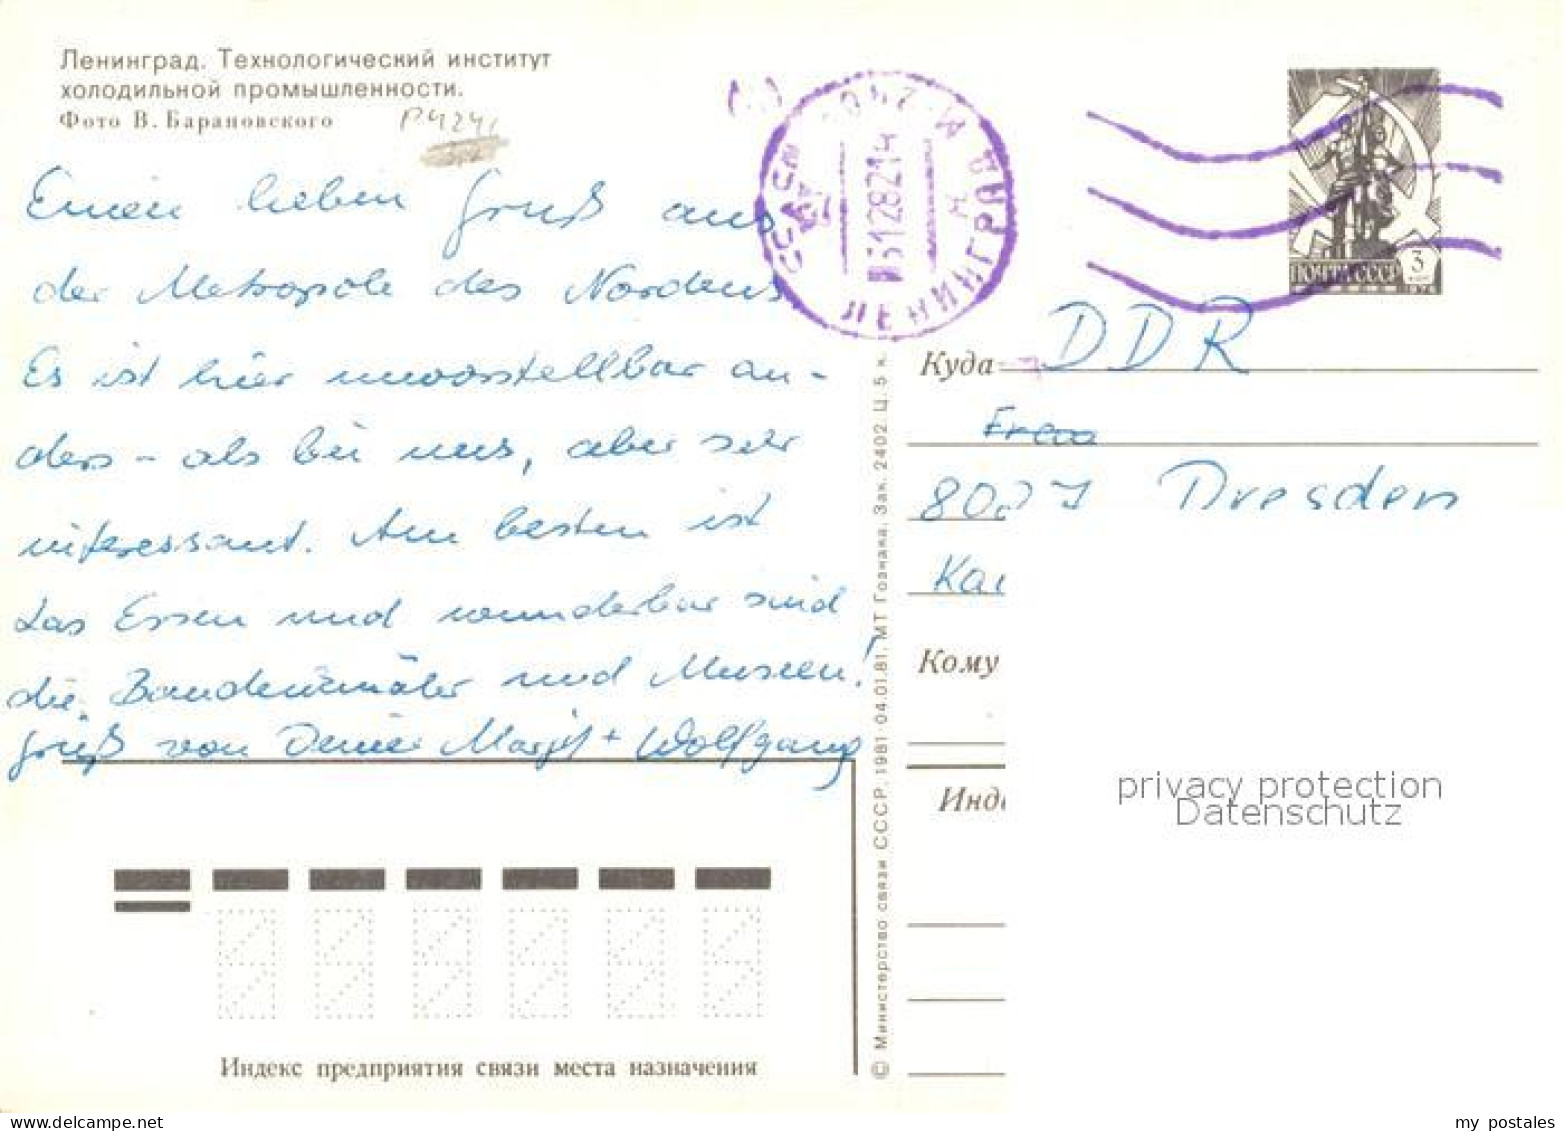 Ленинград. Технологический институт
холодильной промышленности.
Фото В. Барановского
P4241
Einen lieben Gruß aus
der Metropole des Nordens
Es ist hier unvorstellbar an-
ders - als bei uns, aber sehr
interessant. Am besten ist
das Essen und wunderbar sind
die Baudenkmäler und Museen!
Gruß von Deiner Margit + Wolfgang
Индекс предприятия связи места назначения
© Министерство связи СССР, 1981 04.01.81. МТ Гознака. Зак. 2402. Ц. 5 к.
СССР
ЛЕНИНГРАД
ПОЧТА СССР
3
КОП
1976
Куда
DDR
Frau
8027 Dresden
Кому
privacy protection
Datenschutz
www.delcampe.net
my_postales